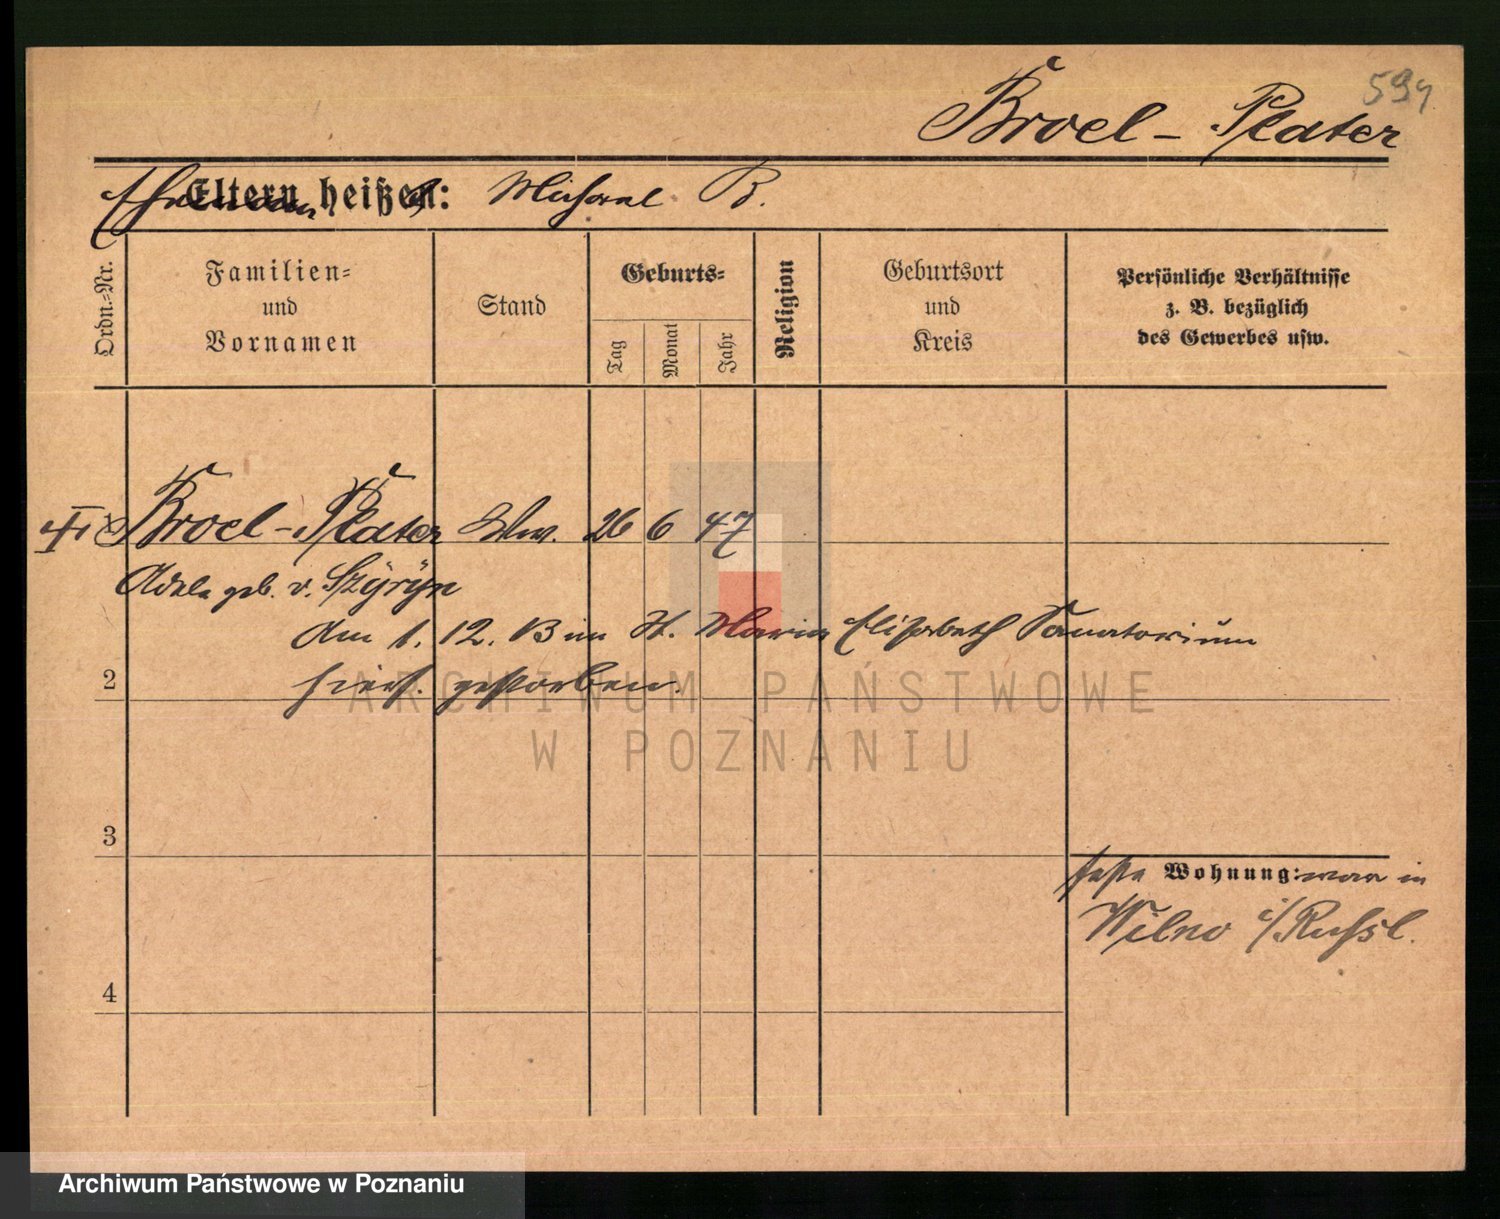 599
Broel-Plater
Ehemann Eltern heißen: Michael B.
Ordn.=Nr.
Familien=
und
Vornamen
Stand
Geburts=
Tag
Monat
Jahr
Religion
Geburtsort
und
Kreis
Persönliche Verhältnisse
z. B. bezüglich
des Gewerbes usw.
Broel-Plater Ww. 26 6 47
Adele geb. v. Szÿrÿn
Am 1. 12. 13 im St. Maria Elisabeth Sanatorium
2 hiers. gestorben.
3
feste Wohnung: war in
Wilno i/Rußl.
4
ARCHIWUM PAŃSTWOWE
W POZNANIU
Archiwum Państwowe w Poznaniu